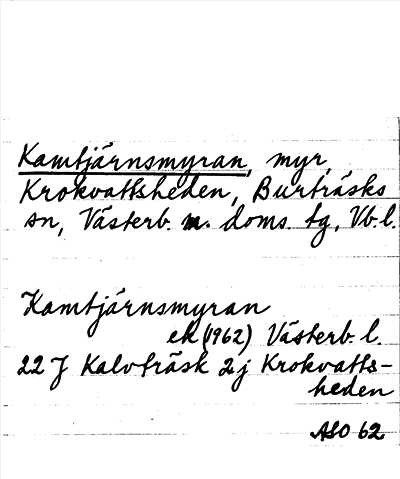 Kamtjärnsmyran, myr,
Krokvattsheden, Burträsks
sn, Västerb. n. doms. tg, Vb. l.
Kamtjärnsmyran
ek (1962) Västerb. l.
22 J Kalvträsk 2 j Krokvatts-
heden
ASO 62